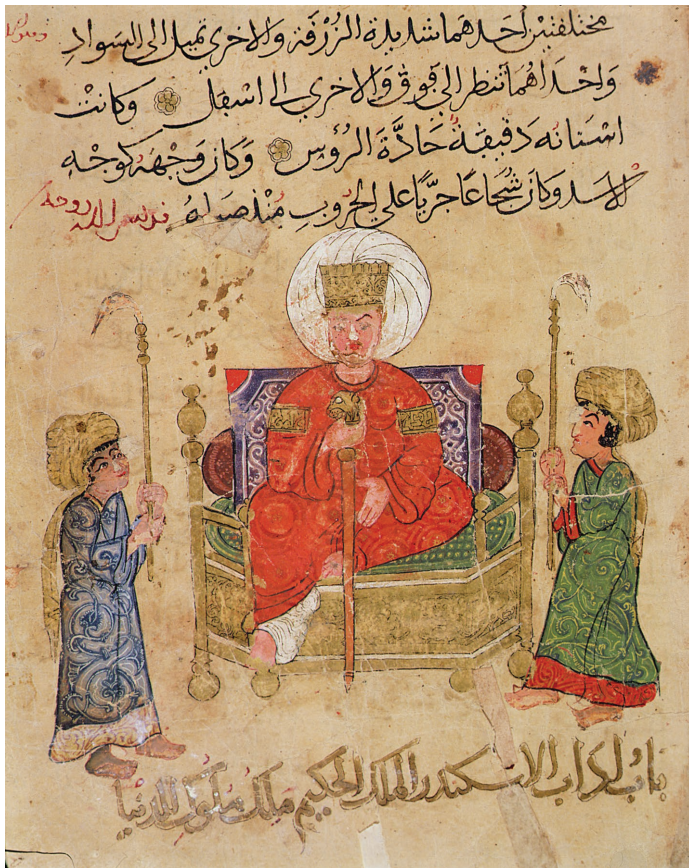 مختلفتين احدهما شديدة الزرقة والاخرى تميل الى السواد
واحداهما تنظر الى فوق والاخرى الى اسفل وكانت
اسنانه دقيقة حادَّة الرؤس وكان وجهه كوجه
الاسد وكان شجاعًا جريًّا على الحروب منذ صباه قدس الله روحه
باب اداب الاسكندر الملك الحكيم ملك ملوك الدنيا